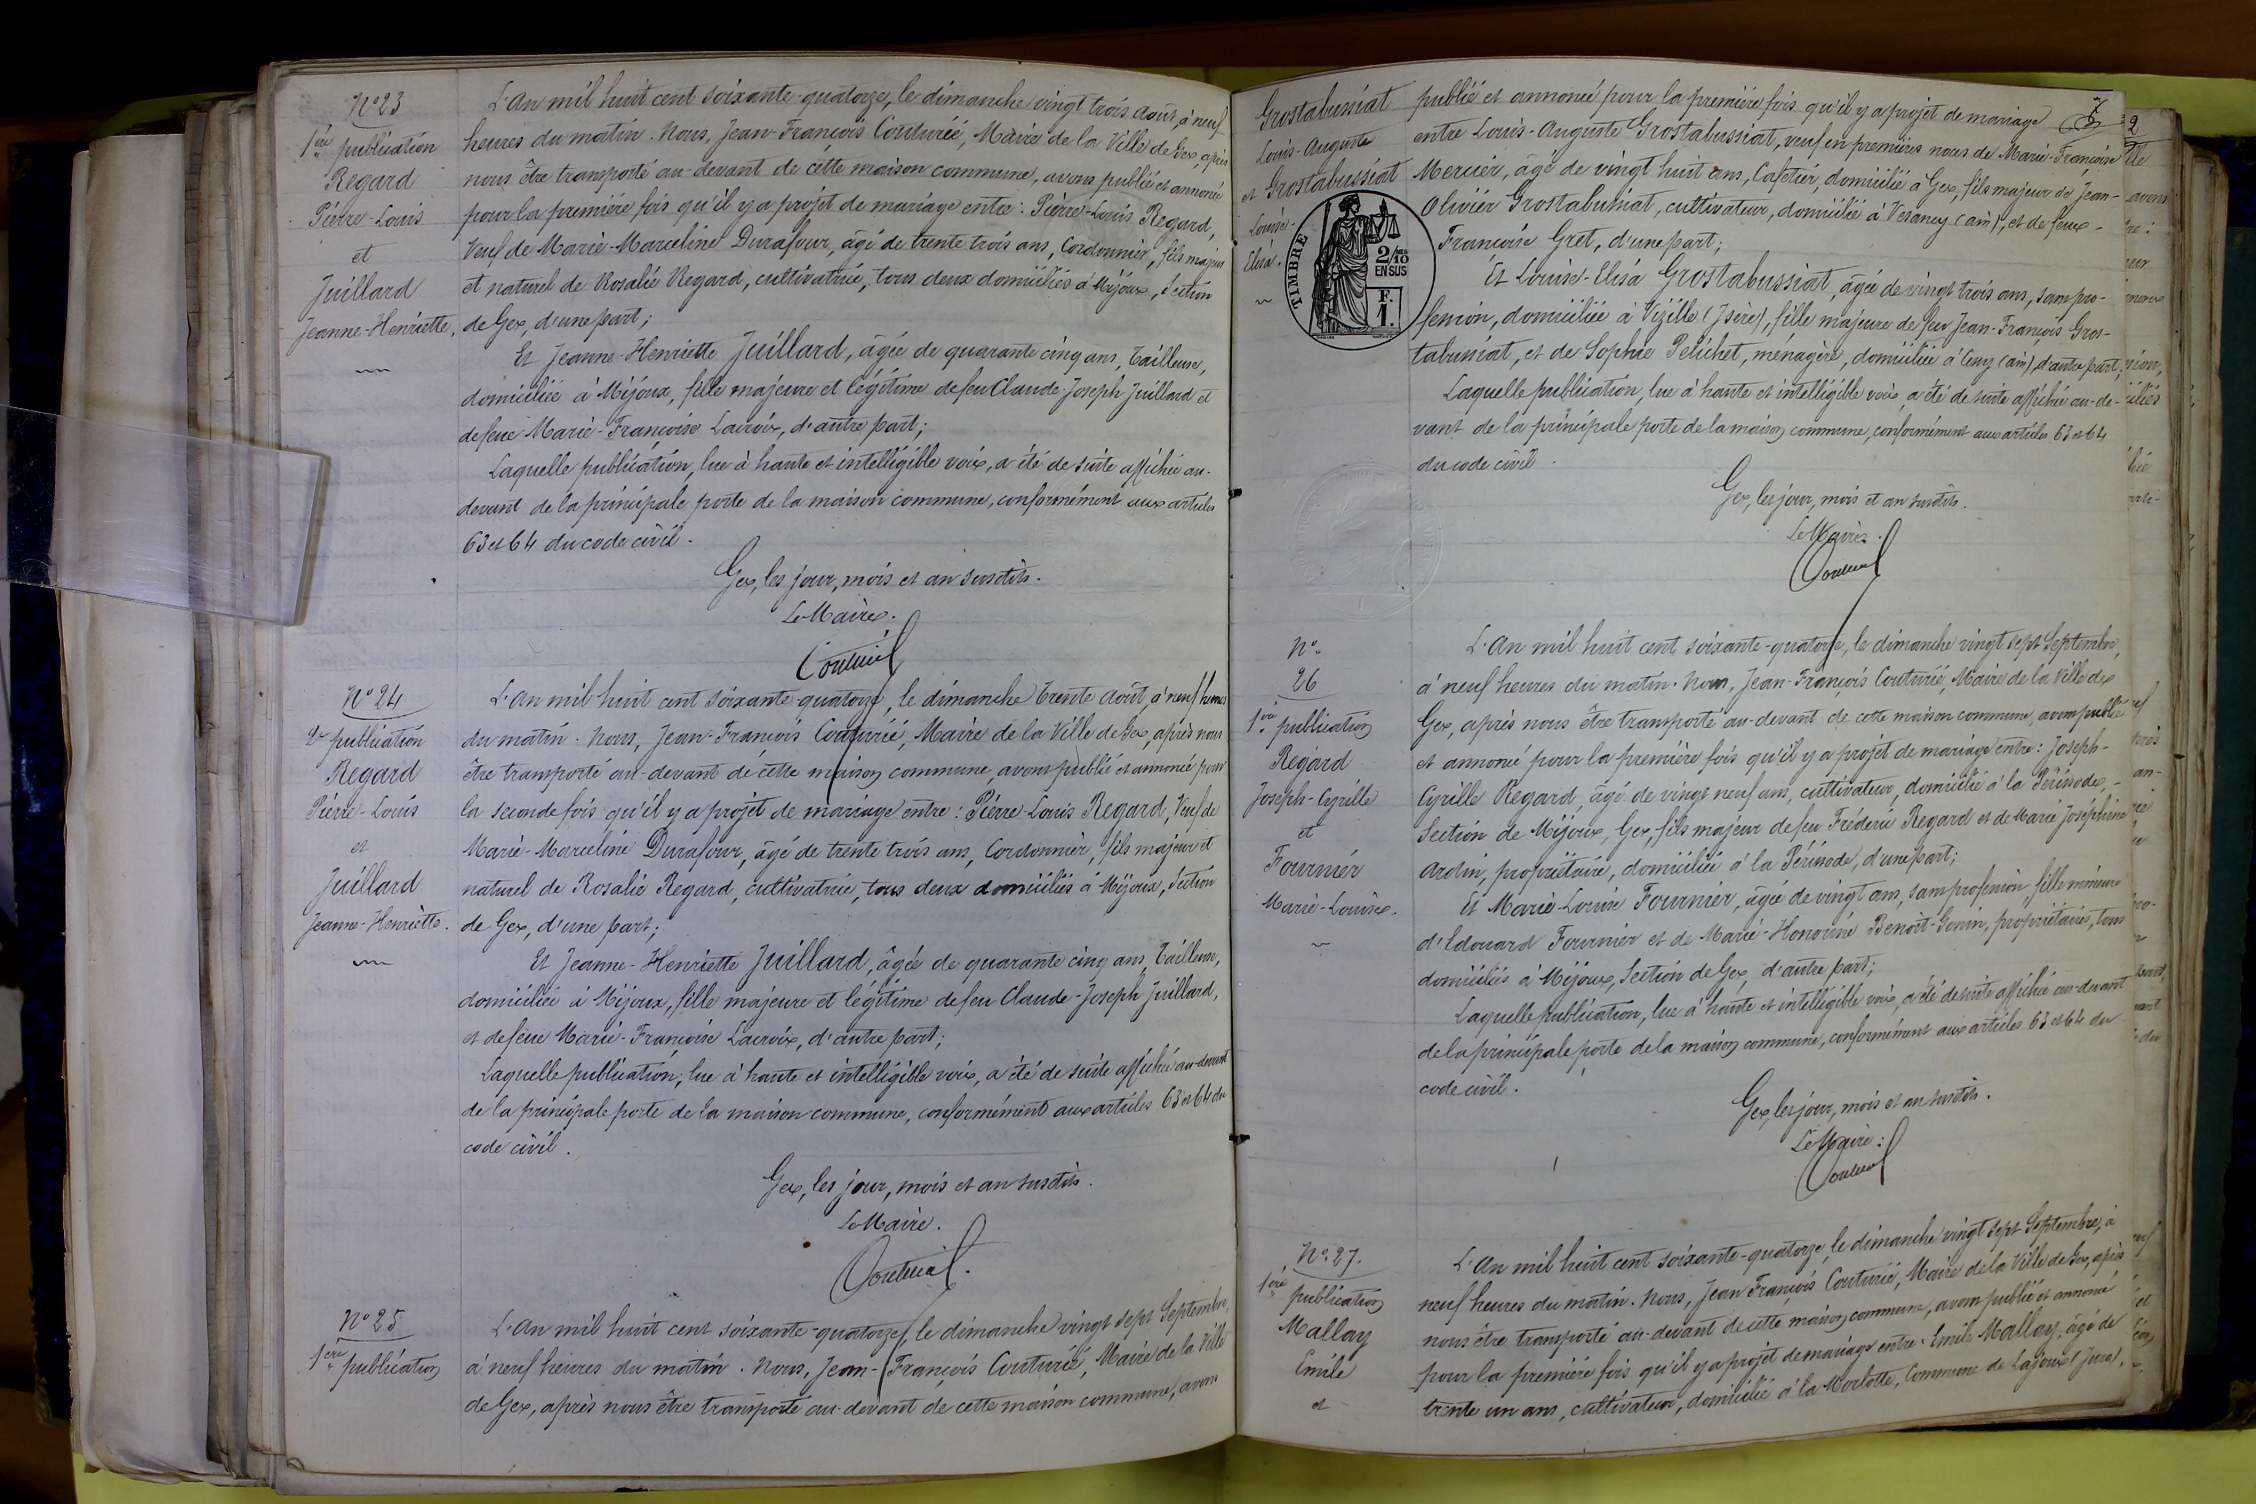 N° 23
1ère publication
Regard
Pierre-Louis
et
Juillard
Jeanne-Henriette.
L'An mil huit cent soixante-quatorze, le dimanche vingt trois Août, à neuf
heures du matin. Nous, Jean-François Couturié, Maire de la Ville de Gex, après
nous être transporté au-devant de cette maison commune, avons publié et annoncé
pour la première fois qu'il y a projet de mariage entre : Pierre-Louis Regard,
Veuf de Marie-Marceline Durafour, âgé de trente trois ans, Cordonnier, fils majeur
et naturel de Rosalie Regard, cultivatrice, tous deux domiciliés à Mijoux, Section
de Gex, d'une part ;
Et Jeanne-Henriette Juillard, âgée de quarante cinq ans, Tailleuse,
domiciliée à Mijoux, fille majeure et légitime de feu Claude-Joseph Juillard et
de feue Marie-Françoise Lacroix, d'autre part ;
Laquelle publication, lue à haute et intelligible voix, a été de suite affichée au-
devant de la principale porte de la maison commune, conformément aux articles
63 et 64 du code civil.
Gex, les jour, mois et an susdits.
Le Maire.
Couturié
N° 24
2e publication
Regard
Pierre-Louis
et
Juillard
Jeanne-Henriette.
L'An mil huit cent soixante-quatorze, le dimanche trente Août, à neuf heures
du matin. Nous, Jean-François Couturié, Maire de la Ville de Gex, après nous
être transporté au-devant de cette maison commune, avons publié et annoncé pour
la seconde fois qu'il y a projet de mariage entre : Pierre-Louis Regard, Veuf de
Marie-Marceline Durafour, âgé de trente trois ans, Cordonnier, fils majeur et
naturel de Rosalie Regard, cultivatrice, tous deux domiciliés à Mijoux, Section
de Gex, d'une part ;
Et Jeanne-Henriette Juillard, âgée de quarante cinq ans, Tailleuse,
domiciliée à Mijoux, fille majeure et légitime de feu Claude-Joseph Juillard,
et de feue Marie-Françoise Lacroix, d'autre part ;
Laquelle publication, lue à haute et intelligible voix, a été de suite affichée au-devant
de la principale porte de la maison commune, conformément aux articles 63 et 64 du
code civil.
Gex, les jour, mois et an susdits.
Le Maire.
Couturié
N° 25
1ère publication
L'An mil huit cent soixante-quatorze, le dimanche vingt sept Septembre,
à neuf heures du matin. Nous, Jean-François Couturié, Maire de la Ville
de Gex, après nous être transporté au-devant de cette maison commune, avons
7
Grostabussiat
Louis-Auguste
et Grostabussiat
Louise-
Elisa.
TIMBRE
2/10 EN SUS
F. 1.
publié et annoncé pour la première fois qu'il y a projet de mariage
entre Louis-Auguste Grostabussiat, veuf en premières noces de Marie-Françoise
Mercier, âgé de vingt huit ans, Cafetier, domicilié à Gex, fils majeur de Jean-
Olivier Grostabussiat, cultivateur, domicilié à Vesancy (ain), et de feue
Françoise Gret, d'une part ;
Et Louise-Elisa Grostabussiat, âgée de vingt trois ans, sans pro-
fession, domiciliée à Vizille (Isère), fille majeure de feu Jean-François Gros-
tabussiat, et de Sophie Pelichet, ménagère, domiciliée à Cessy (ain), d'autre part ;
Laquelle publication, lue à haute et intelligible voix, a été de suite affichée au-de-
vant de la principale porte de la maison commune, conformément aux articles 63 et 64
du code civil.
Gex, les jour, mois et an susdits.
Le Maire.
Couturié
N°
26
1ère publication
Regard
Joseph-Cyrille
et
Fournier
Marie-Louise.
L'An mil huit cent soixante-quatorze, le dimanche vingt sept Septembre,
à neuf heures du matin. Nous, Jean-François Couturié, Maire de la Ville de
Gex, après nous être transporté au-devant de cette maison commune, avons publié
et annoncé pour la première fois qu'il y a projet de mariage entre : Joseph-
Cyrille Regard, âgé de vingt neuf ans, cultivateur, domicilié à la Périsode,
Section de Mijoux, Gex, fils majeur de feu Fréderic Regard et de Marie Joséphine
Ardin, propriétaire, domiciliée à la Périsode, d'une part ;
Et Marie-Louise Fournier, âgée de vingt ans, sans profession, fille mineure
d'Edouard Fournier et de Marie-Honorine Benoit-Gonin, propriétaires, tous
domiciliés à Mijoux, Section de Gex, d'autre part ;
Laquelle publication, lue à haute et intelligible voix, a été de suite affichée au-devant
de la principale porte de la maison commune, conformément aux articles 63 et 64 du
code civil.
Gex, les jour, mois et an susdits.
Le Maire :
Couturié
N° 27.
1ère
publication
Mallay
Emile
et
L'An mil huit cent soixante-quatorze, le dimanche vingt sept Septembre, à
neuf heures du matin. Nous, Jean François Couturié, Maire de la Ville de Gex, après
nous être transporté au-devant de cette maison commune, avons publié et annoncé
pour la première fois qu'il y a projet de mariage entre : Emile Mallay, âgé de
trente un ans, cultivateur, domicilié à la Mortotte, Commune de Lajoux (Jura),